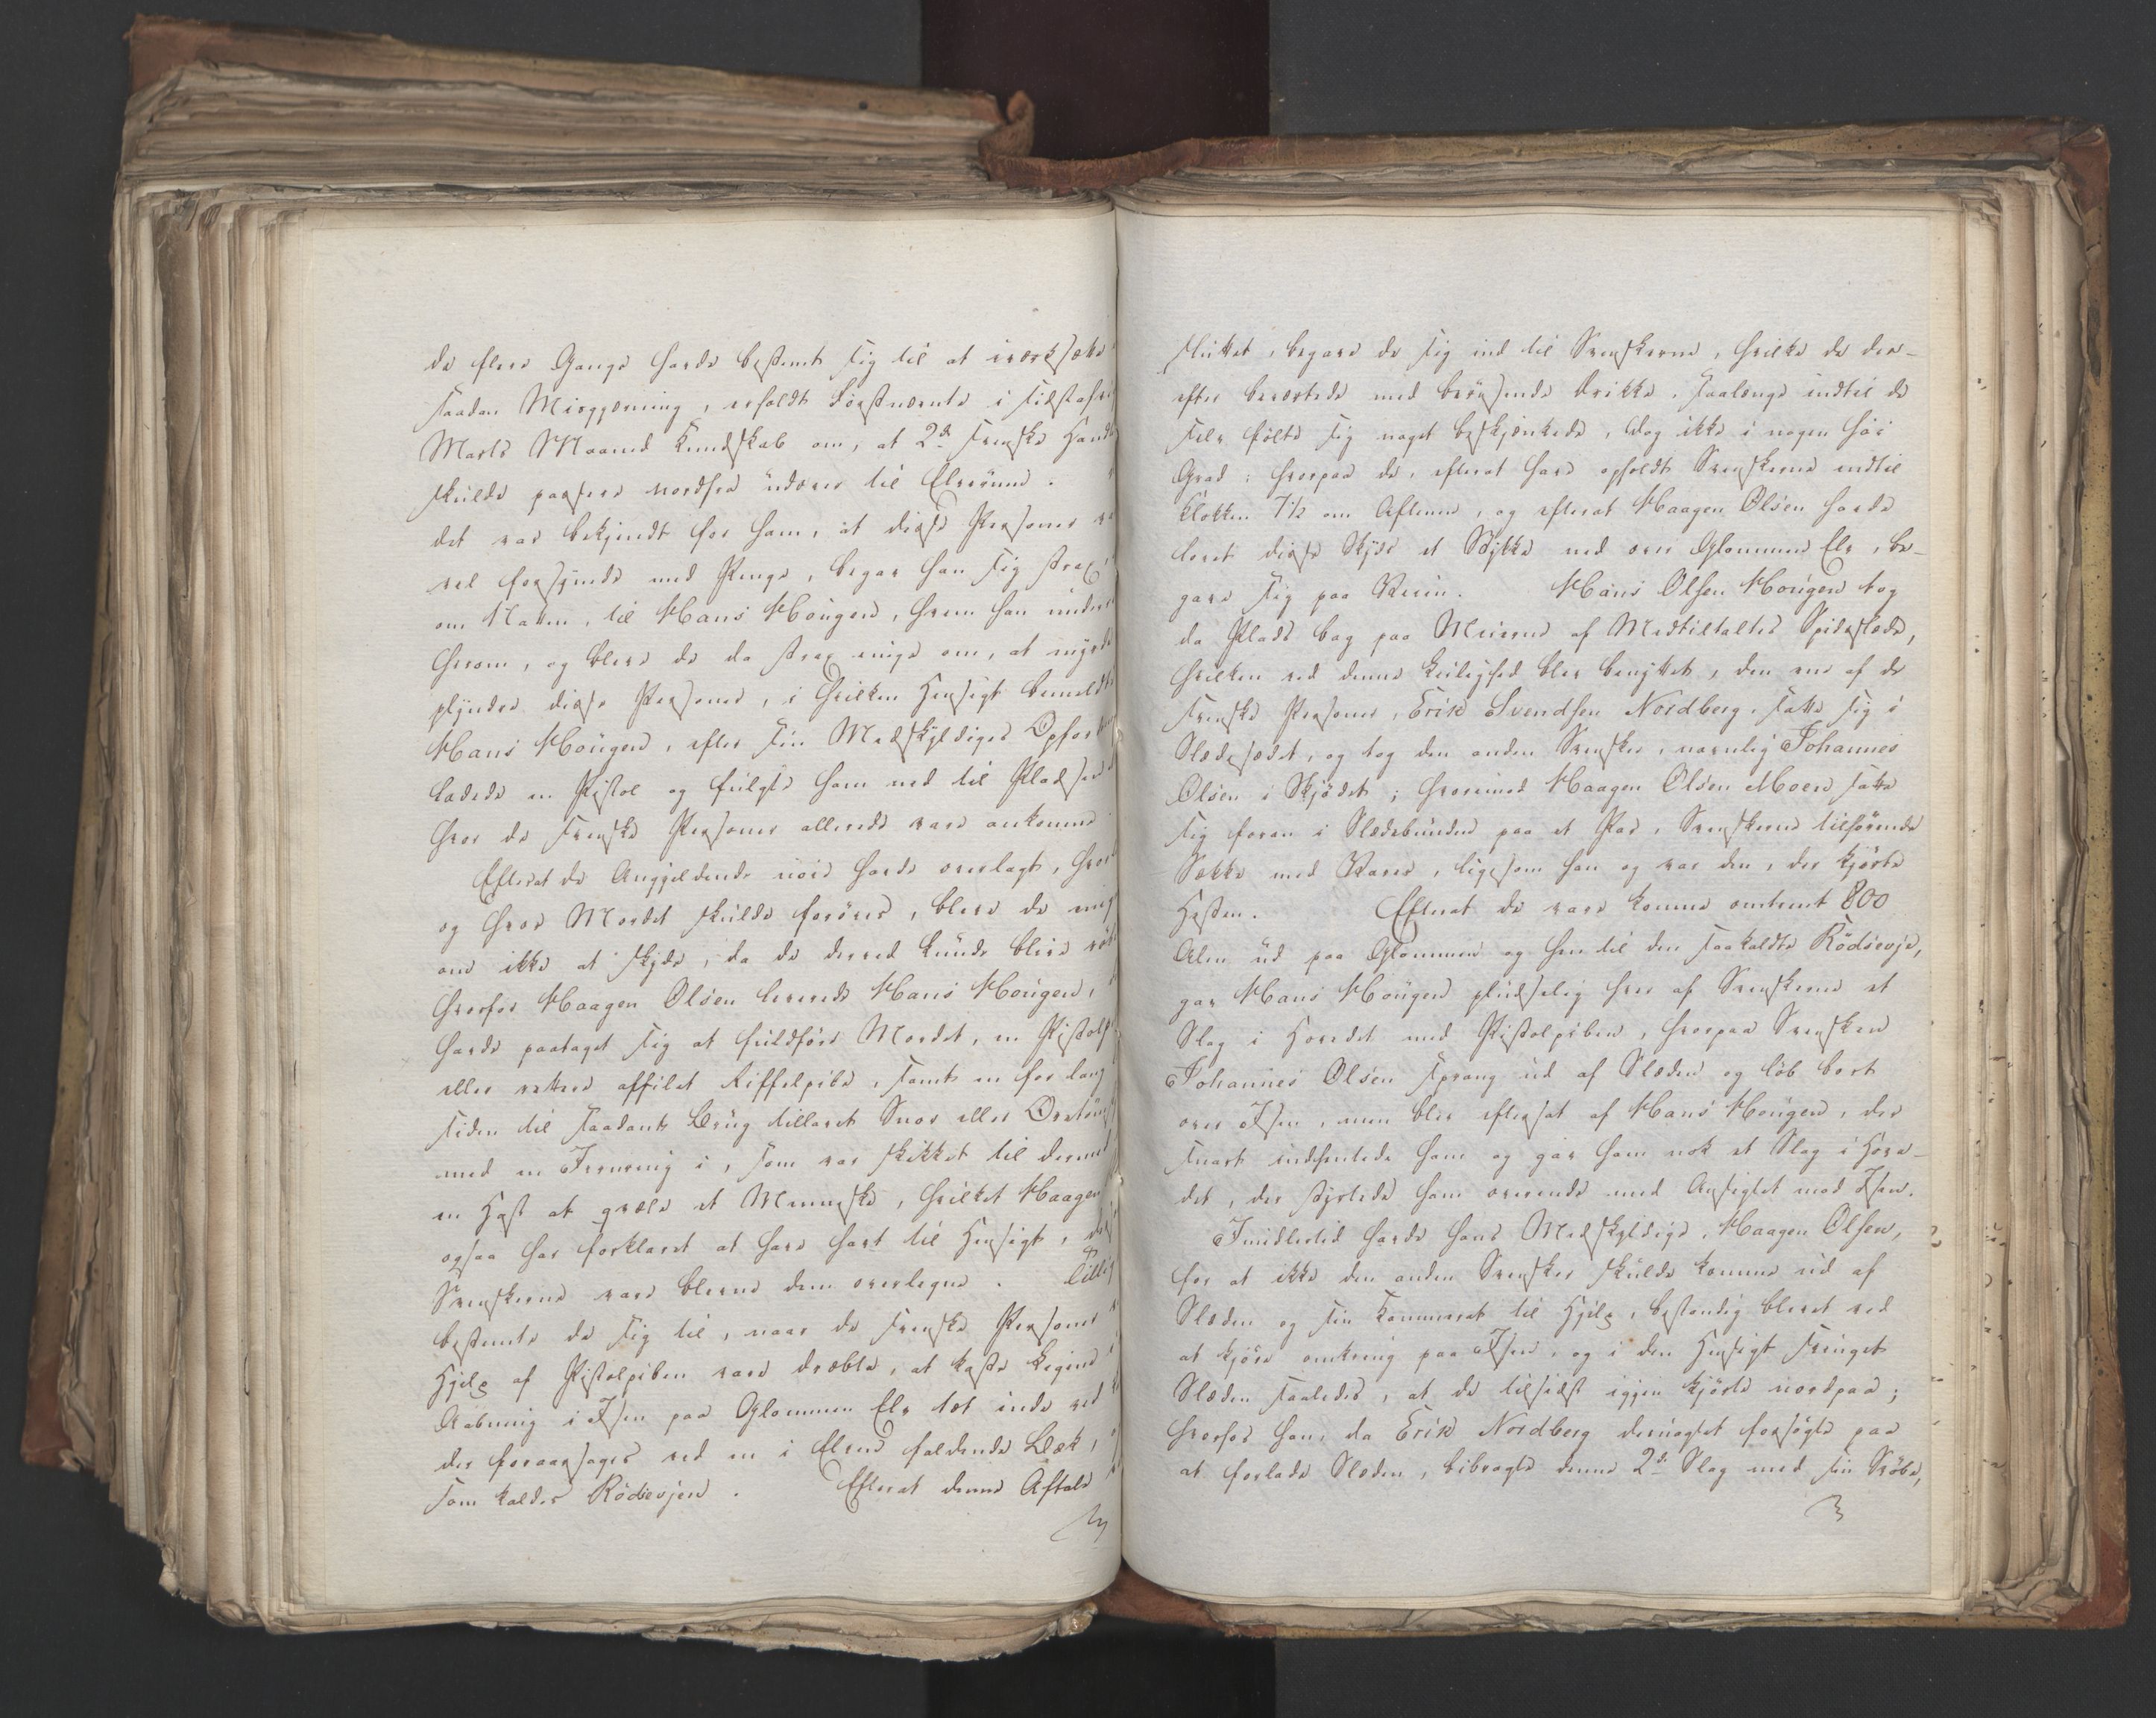 de flere Gange havde bestemt sig til at iværksætte
saadan Misgjerning, erholdt Førstnævnte i sidstafv
Marts Maaned Kundskab om, at 2de svenske Handl
skulde passere nordfra udover til Elverum.
det var bekjendt for ham, at disse Personer va
vel forsynede med Penge, begav han sig strax
om Natten, til Hans Hougen, hvem han underr
herom, og bleve de da strax enige om, at myrde
plyndre disse Personer, i hvilken Hensigt bemeldte
Hans Hougen, efter sin Medskyldiges Opford
ladede en Pistol og fulgte ham ned til Pladsen
hvor de svenske Personer allerede vare ankomne
Efterat de Angjeldende nøie havde overlagt, hvor
og hvor Mordet skulde forøves, bleve de enig
om ikke at skyde, da de derved kunde blive røb
hvorfor Haagen Olsen leverede Hans Hougen,
havde paataget sig at fuldføre Mordet, en Pistolp
eller rettere affilet Riffelpibe, samt en for lang
siden til saadant Brug tillavet Snor eller
med en i, som var skikket til dermed
en Hast at qvæle et Menneske, hvilket Haagen
ogsaa har forklaret at have havt til Hensigt, de
Svenskerne vare blevne dem overlegne. Tillig
bestemte de sig til, naar de svenske Personer
Hjelp af Pistolpiben vare dræbte, at kaste Ligene
Aabning i Isen paa Glommen Elv tæt inde ved
der foraarsages ved en i Elven faldende Bæk,
som kaldes Rødsevjen. Efterat denne Aftale
sluttet, begave de sig ind til Svenskerne, hvilke de der-
efter beværtede med berusende Drikke, saalænge indtil de
selv følte sig noget beskjænkede, dog ikke i nogen høi
Grad; hvorpaa de, efterat have opholdt Svenskerne indtil
Klokken 7½ om Aftenen, og efterat Haagen Olsen havde
lovet disse Skyds et Stykke ned over Glommens Elv, be-
gave sig paa Veien. Hans Olsen Hougen tog
da Plads bag paa Meierne af Medtiltaltes Spidsslæde,
hvilken ved denne Leilighed blev benyttet, den ene af de
svenske Personer, Erik Svendsen Nordberg, satte sig i
Slædesædet, og tog den anden Svenske, navnlig Johannes
Olsen i Skjødet; hvorimod Haagen Olsen Moen satte
sig foran i Slædebunden paa et Par, Svenskerne tilhørende
Sække med Varer, ligesom han og var den, der kjørte
Hesten. Efterat de vare komne omtrent 800
Alen ud paa Glommen og hen til den saakaldte Rødsevje,
gav Hans Hougen pludselig hver af Svenskerne et
Slag i Hovedet med Pistolpiben, hvorpaa Svensken
Johannes Olsen sprang ud af Slæden og løb bort
over Isen, men blev eftersat af Hans Hougen, der
snart indhentede ham og gav ham nok et Slag i Hove-
det, der styrtede ham overende med Ansigtet mod Isen.
Imidlertid havde hans Medskyldige, Haagen Olsen,
for at ikke den anden Svensker skulde komme ud af
Slæden og sin Kammerat til Hjelp, bestandig blevet ved
at kjøre omkring paa Isen, og i den Hensigt svinget
Slæden saaledes, at de tilsidst igjen kjørte nordpaa;
hvorfor han, da Erik Nordberg desuagtet forsøgte paa
at forlade Slæden, bibragte denne 2de Slag med sin Svøbe,